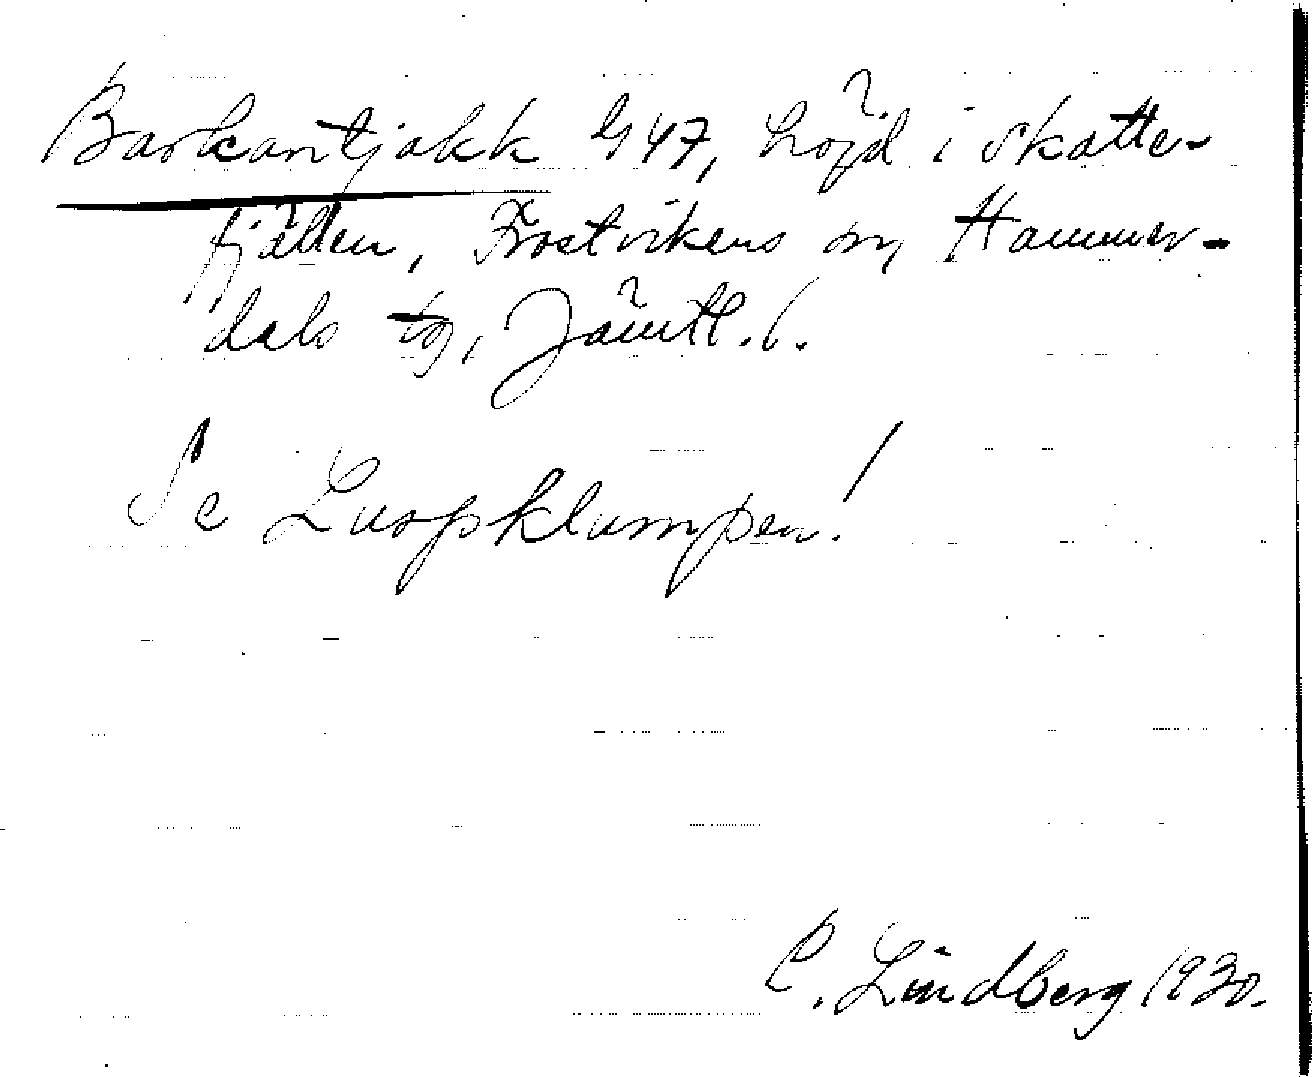 Barkantjakk 4/47, höjd i skatte-
fjällen, Frostvikens sn, Hammer-
dals tg, Jämtl. l.
Se Luspklumpen!
C. Lindberg 1930.